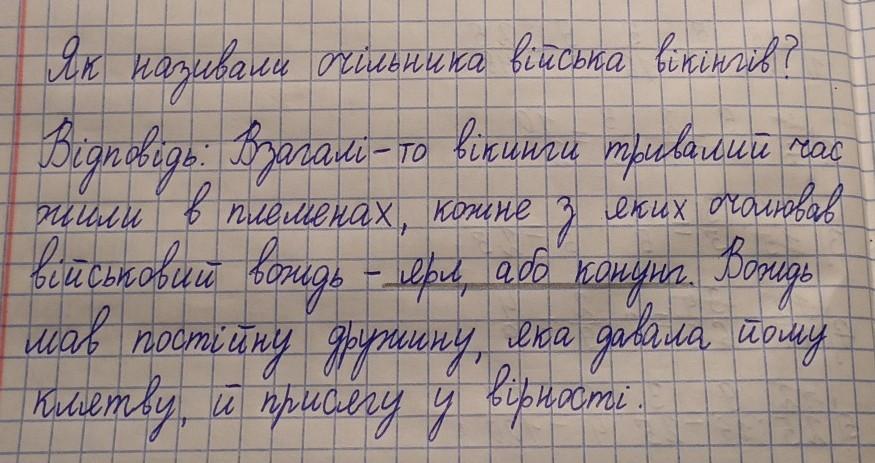 Як називали очільника війська вікінгів?
Відповідь: Взагалі-то вікинги тривалий час
жили в племенах, кожне з яких очолював
військовий вождь - ярл, або конунг. Вождь
мав постійну дружину, яка давала йому
клятву, й присягу у вірності.